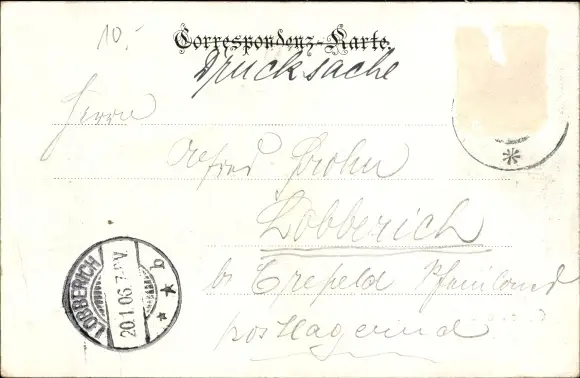 10.-
Correspondenz-Karte.
Drucksache
Herrn
Alfred Brohn
Lobberich
bei Crefeld Rheinland
postlagernd
LOBBERICH
20.1.06. 7-8V
* * b
*